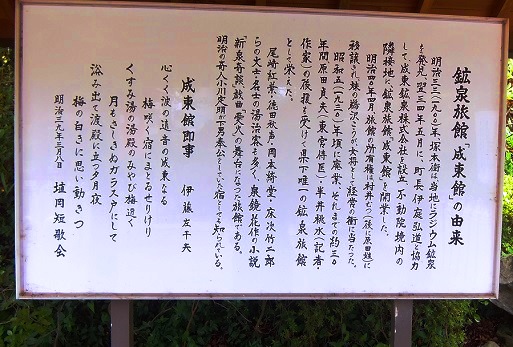 鉱泉旅館「成東館」の由来
明治三三(一九〇〇)年、塚本衡は当地にラジウム鉱泉
を発見、翌三四年五月に、町長伊庭弘道と協力
して成東鉱泉株式会社を設立、不動院境内の
隣接地に鉱泉旅館「成東館」を開業した。
明治四〇年四月、旅館の所有権は村井だつ(後に原田録)に
移譲され、妹の鵜沢とうが女将として経営の衝に当たった。
昭和五(一九三〇)年頃に廃業、それまでの約三〇
年間原田貞夫(東宮侍医)、半井桃水(記者・
作家)の後援も受けて県下唯一の鉱泉旅館
として栄えた。
尾崎紅葉・徳田秋声・岡本綺堂・床次竹二郎
らの文士名士の湯治客も多く、泉鏡花作の小説
「新泉奇談」、戯曲「愛火」の舞台になった旅館である。
明治の奇人小川定明が下男奉公をしていた宿としても知られている。
成東館即事 伊藤左千夫
心ぐく波の遠音の成東なる
梅咲く宿にまとゐせりけり
くすみ湯の湯殿のみやび梅近く
月もきしきぬガラス戸にして
浴み出て波殿に立つ夕月夜
梅の白きに思い動きつ
明治三九年三月八日 埴岡短歌会